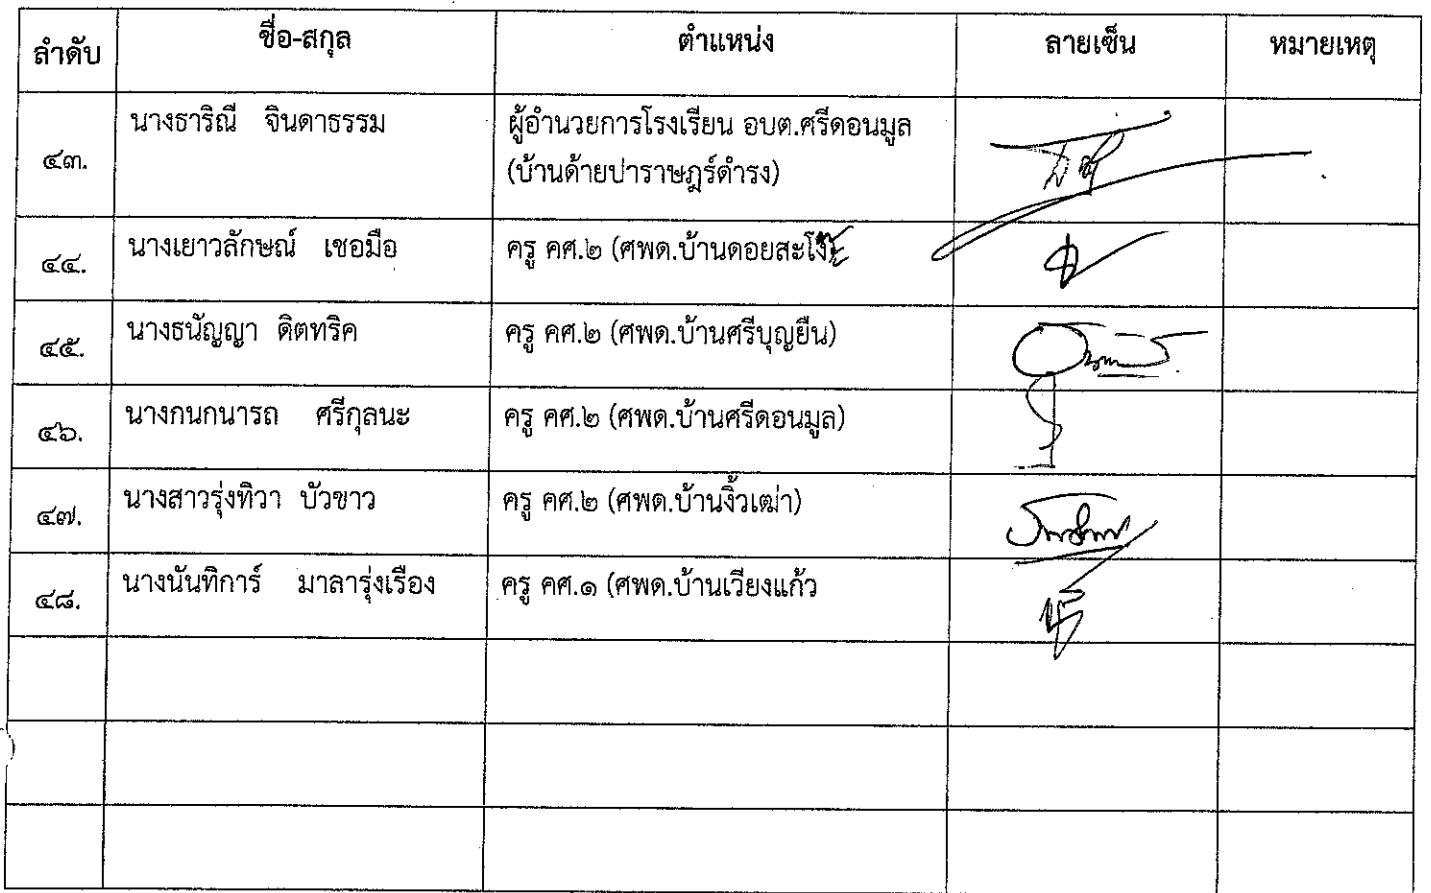 ลำดับ ชื่อ-สกุล ตำแหน่ง ลายเซ็น หมายเหตุ
๔๓. นางธาริณี จินดาธรรม ผู้อำนวยการโรงเรียน อบต.ศรีดอนมูล
(บ้านด้ายปาราษฎร์ดำรง)
๔๔. นางเยาวลักษณ์ เชอมือ ครู คศ.๒ (ศพด.บ้านดอยสะโง้)
๔๕. นางธนัญญา ดิตทริค ครู คศ.๒ (ศพด.บ้านศรีบุญยืน)
๔๖. นางกนกนารถ ศรีกุลนะ ครู คศ.๒ (ศพด.บ้านศรีดอนมูล)
๔๗. นางสาวรุ่งทิวา บัวขาว ครู คศ.๒ (ศพด.บ้านงิ้วเฒ่า)
๔๘. นางนันทิการ์ มาลารุ่งเรือง ครู คศ.๑ (ศพด.บ้านเวียงแก้ว